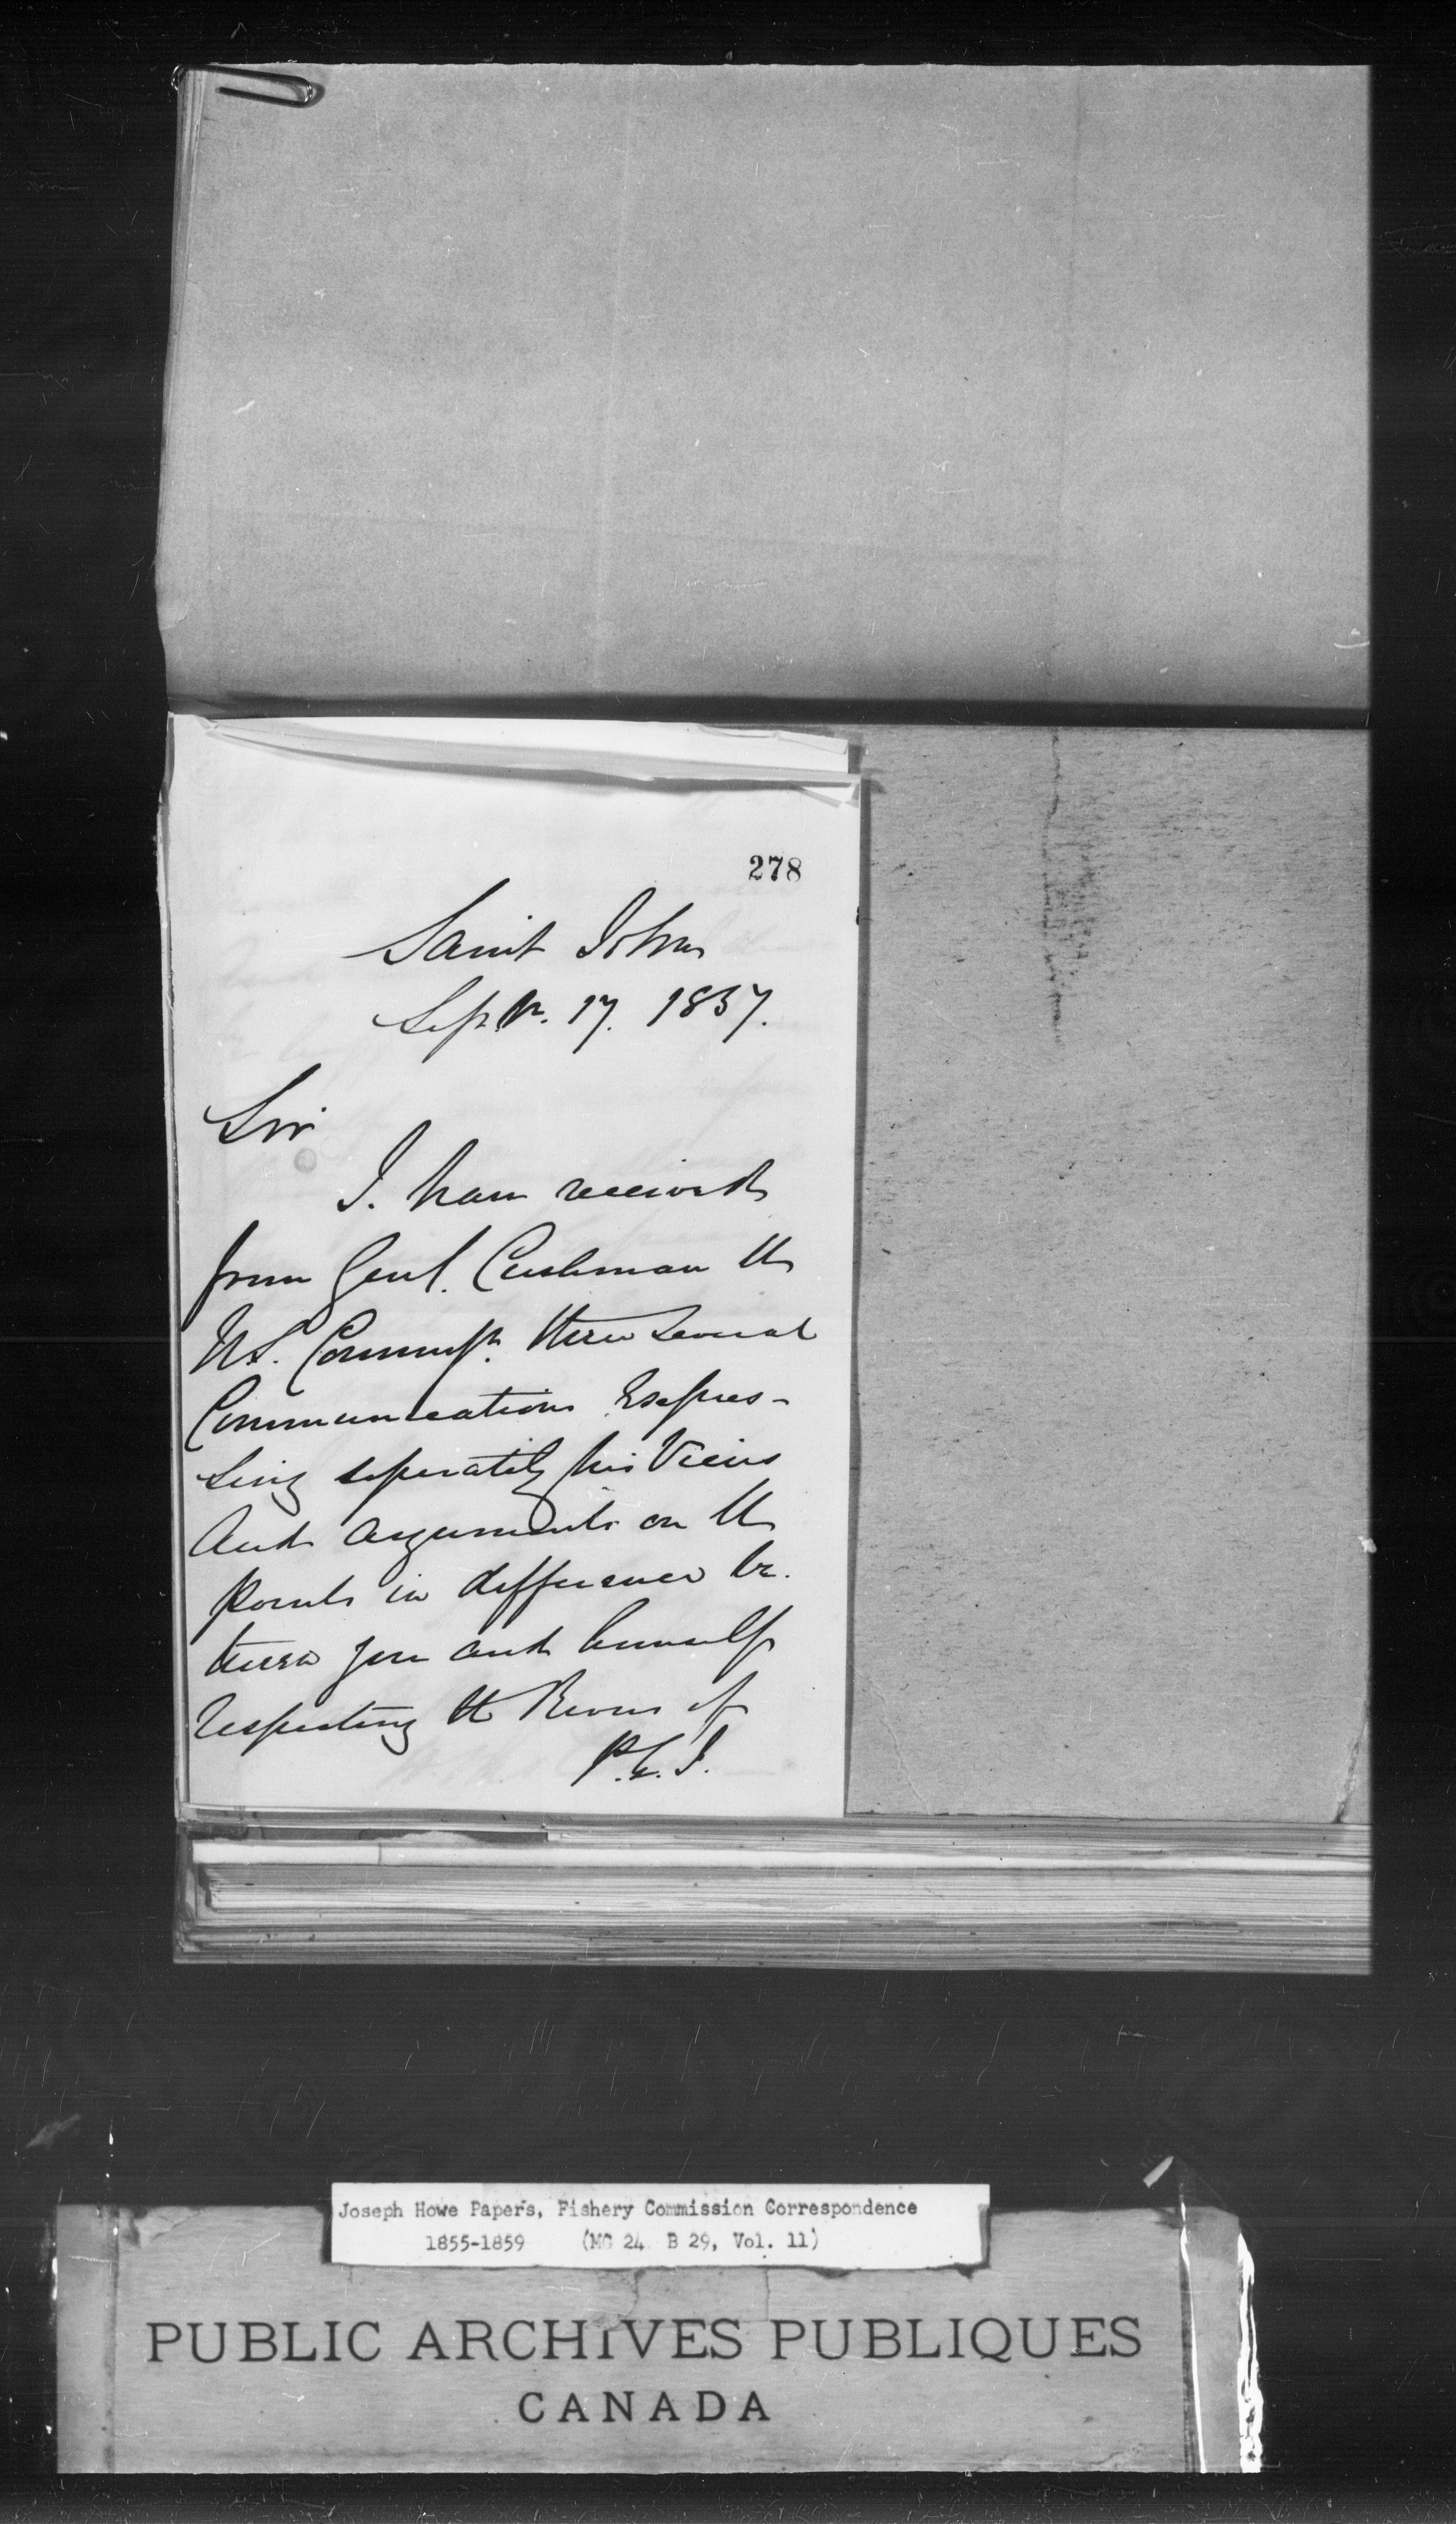 278
Saint John
Sepr. 17. 1857.
Sir
I have received
from Genl. Cushman the
U.S. Commissr. three several
Communications Expres-
sing seperately his Views
And Arguments on the
Points in difference be.
tween you and himself
respecting the Rivers of
P.E.I.
Joseph Howe Papers, Fishery Commission Correspondence
1855-1859 (MG 24 B 29, Vol. 11)
PUBLIC ARCHIVES PUBLIQUES
CANADA